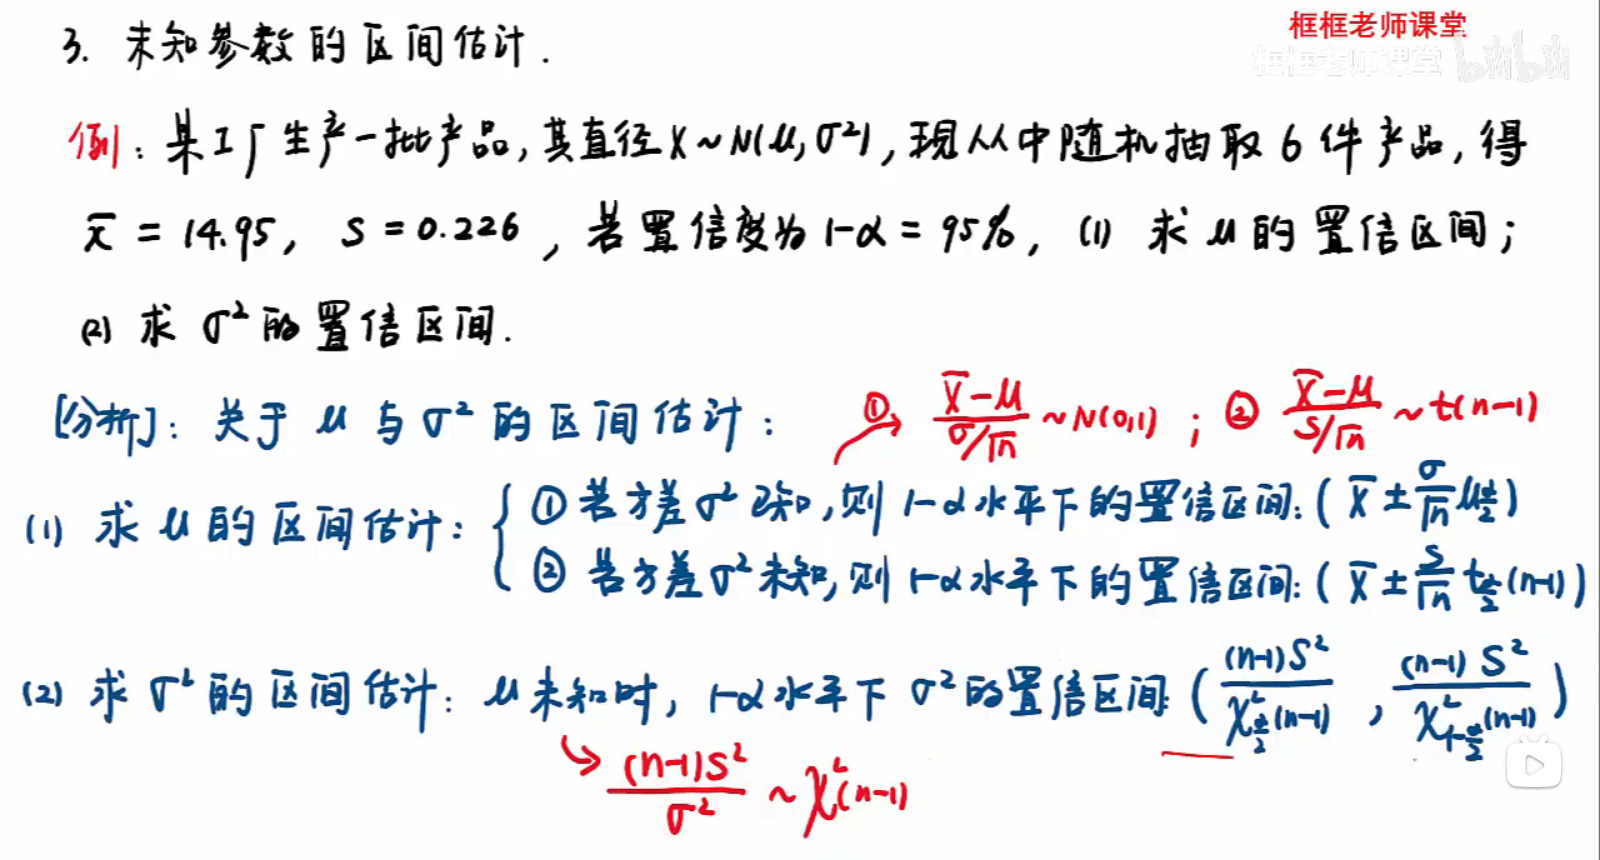 框框老师课堂
框框老师课堂 bilibili
3. 未知参数的区间估计.
例: 某工厂生产一批产品, 其直径X~N(μ,σ²), 现从中随机抽取6件产品, 得
x̄ = 14.95, S = 0.226, 若置信度为1-α = 95%, (1) 求μ的置信区间;
(2) 求σ²的置信区间.
[分析]: 关于μ与σ²的区间估计: ① (X̄-μ)/(σ/√n) ~N(0,1); ② (X̄-μ)/(S/√n) ~t(n-1)
(1) 求μ的区间估计: { ① 若方差σ²已知, 则1-α水平下的置信区间: (X̄ ± σ/√n μ_{α/2})
② 若方差σ²未知, 则1-α水平下的置信区间: (X̄ ± S/√n t_{α/2}(n-1))
(2) 求σ²的区间估计: μ未知时, 1-α水平下σ²的置信区间: ((n-1)S²/χ²_{α/2}(n-1), (n-1)S²/χ²_{1-α/2}(n-1))
(n-1)S²/σ² ~ χ²(n-1)